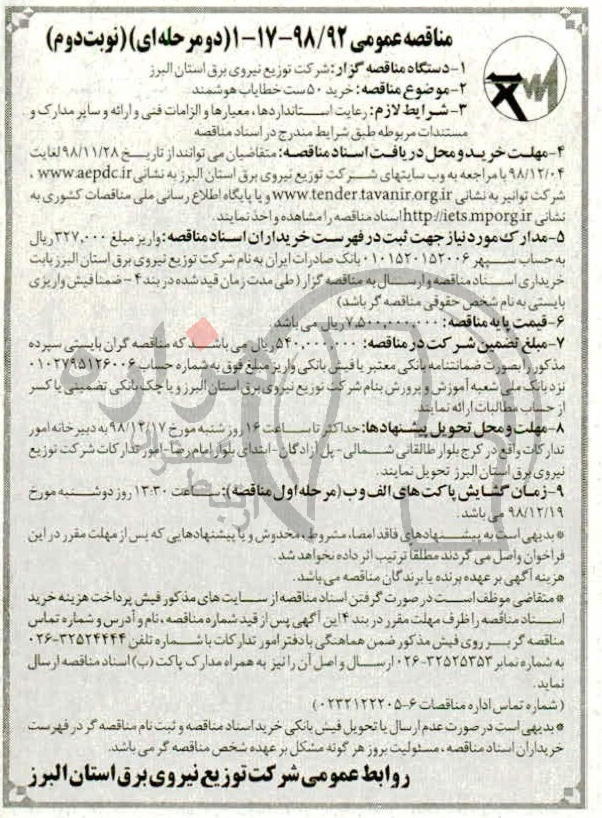 مناقصه عمومی ۹۸/۹۲-۱۷-۱ (دو مرحله ای) (نوبت دوم)
۱-دستگاه مناقصه گزار: شرکت توزیع نیروی برق استان البرز
۲-موضوع مناقصه: خرید ۵۰ ست خطایاب هوشمند
۳-شرایط لازم: رعایت استانداردها، معیارها و الزامات فنی و ارائه و سایر مدارک و
مستندات مربوطه طبق شرایط مندرج در اسناد مناقصه
۴-مهلت خرید و محل دریافت اسناد مناقصه: متقاضیان می توانند از تاریخ ۹۸/۱۱/۲۸ لغایت
۹۸/۱۲/۰۴ با مراجعه به وب سایتهای شرکت توزیع نیروی برق استان البرز به نشانی www.aepdc.ir،
شرکت توانیر به نشانی www.tender.tavanir.org.ir و یا پایگاه اطلاع رسانی ملی مناقصات کشوری به
نشانی http://iets.mporg.ir اسناد مناقصه را مشاهده و اخذ نمایند.
۵-مدارک مورد نیاز جهت ثبت در فهرست خریداران اسناد مناقصه: واریز مبلغ ۳۲۷,۰۰۰ ریال
به حساب سپهر ۰۱۰۱۵۲۰۱۵۲۰۰۶ بانک صادرات ایران به نام شرکت توزیع نیروی برق استان البرز بابت
خریداری اسناد مناقصه و ارسال به مناقصه گزار (طی مدت زمان قید شده در بند ۴ - ضمنا فیش واریزی
بایستی به نام شخص حقوقی مناقصه گر باشد)
۶-قیمت پایه مناقصه: ۷,۵۰۰,۰۰۰,۰۰۰ ریال می باشد.
۷-مبلغ تضمین شرکت در مناقصه: ۵۴۰,۰۰۰,۰۰۰ ریال می باشد که مناقصه گران بایستی سپرده
مذکور را بصورت ضمانتنامه بانکی معتبر یا فیش بانکی واریز مبلغ فوق به شماره حساب ۰۱۰۲۷۹۵۱۲۶۰۰۶
نزد بانک ملی شعبه آموزش و پرورش بنام شرکت توزیع نیروی برق استان البرز و یا چک بانکی تضمینی یا کسر
از حساب مطالبات ارائه نمایند.
۸-مهلت و محل تحویل پیشنهادها: حداکثر تا ساعت ۱۶ روز شنبه مورخ ۹۸/۱۲/۱۷ به دبیرخانه امور
تدارکات واقع در کرج بلوار طالقانی شمالی-پل آزادگان-ابتدای بلوار امام رضا-امور تدارکات شرکت توزیع
نیروی برق استان البرز تحویل نمایند.
۹-زمان گشایش پاکت های الف و ب (مرحله اول مناقصه): ساعت ۱۳:۳۰ روز دوشنبه مورخ
۹۸/۱۲/۱۹ می باشد.
* بدیهی است به پیشنهادهای فاقد امضاء، مشروط، مخدوش و یا پیشنهادهایی که پس از مهلت مقرر در این
فراخوان واصل می گردند مطلقا ترتیب اثر داده نخواهد شد.
هزینه آگهی بر عهده برنده یا برندگان مناقصه می باشد.
* متقاضی موظف است در صورت گرفتن اسناد مناقصه از سایت های مذکور فیش پرداخت هزینه خرید
اسناد مناقصه را ظرف مهلت مقرر در بند ۴ این آگهی پس از قید شماره مناقصه، نام و آدرس و شماره تماس
مناقصه گر بر روی فیش مذکور ضمن هماهنگی با دفتر امور تدارکات با شماره تلفن ۳۲۵۲۴۴۴۴-۰۲۶
به شماره نمابر ۳۲۵۲۵۳۵۳-۰۲۶ ارسال و اصل آن را نیز به همراه مدارک پاکت (ب) اسناد مناقصه ارسال
نماید.
(شماره تماس اداره مناقصات ۶-۰۲۳۲۱۲۲۲۰۵)
* بدیهی است در صورت عدم ارسال یا تحویل فیش بانکی خرید اسناد مناقصه و ثبت نام مناقصه گر در فهرست
خریداران اسناد مناقصه، مسئولیت بروز هر گونه مشکل بر عهده شخص مناقصه گر می باشد.
روابط عمومی شرکت توزیع نیروی برق استان البرز